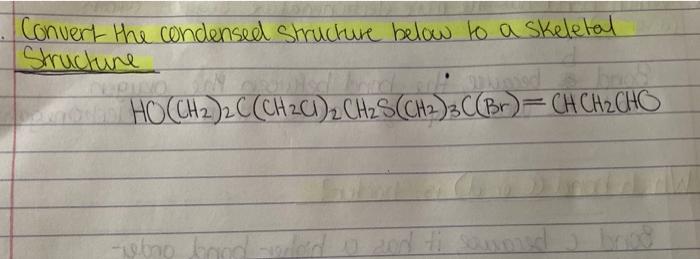 Convert the condensed structure below to a skeletal
Structure
HO(CH2)2C(CH2Cl)2CH2S(CH2)3C(Br)=CHCH2CHO